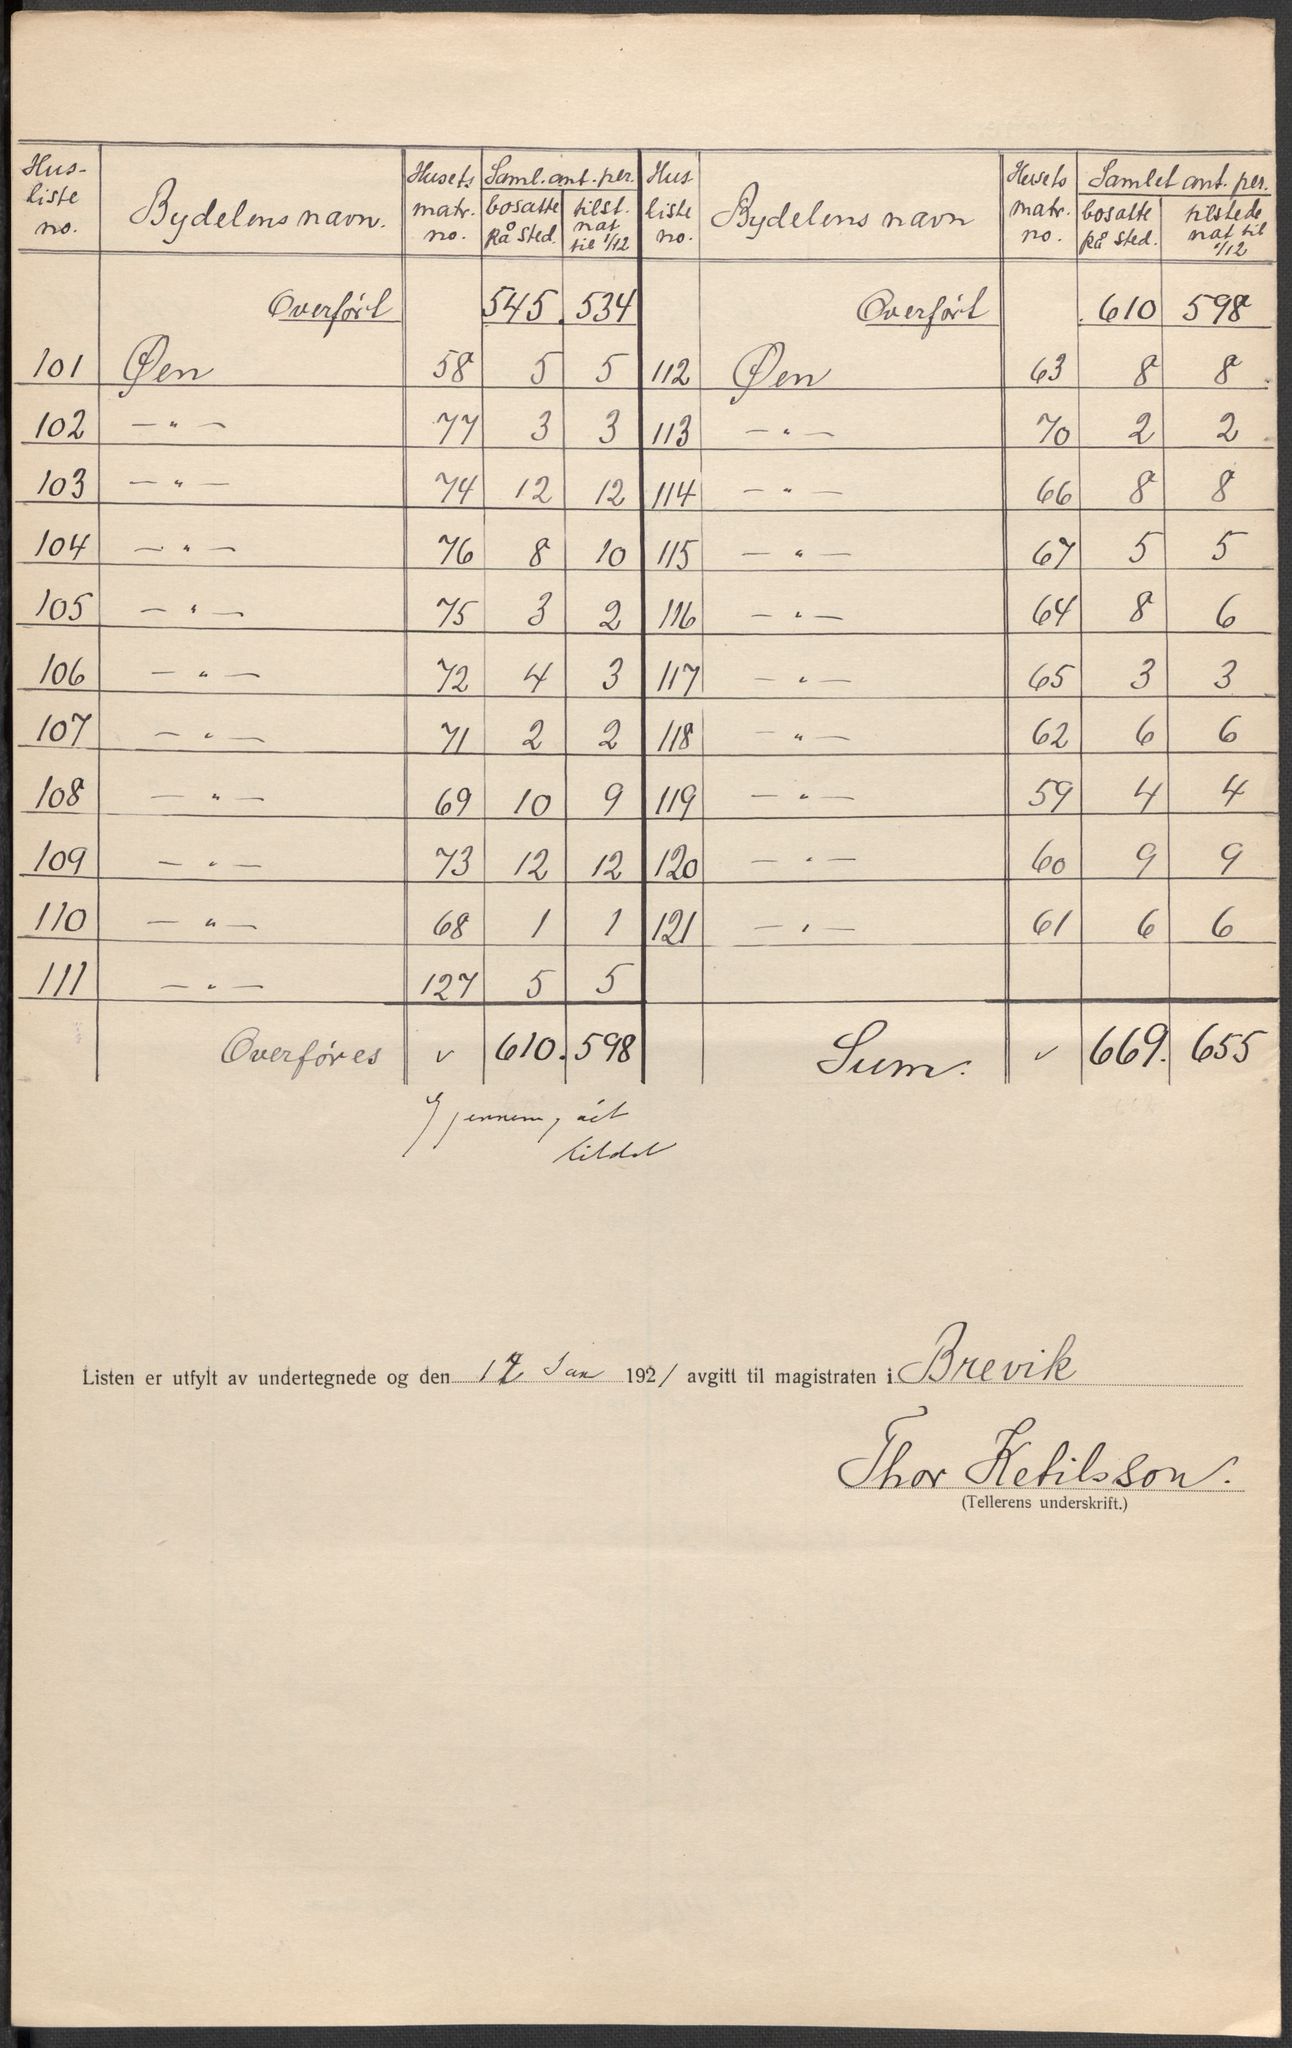 Hus- Husets Saml. ant. per. Hus Husets Samlet ant. per.
liste Bydelens navn. matr. bosatte tilst. liste Bydelens navn matr. bosatte tilstede
no. no. på sted. nat til 1/12 no. no. på sted. nat til 1/12
Overført 545. 534 Overført 610 598
101 Øen 58 5 5 112 Øen 63 8 8
102 — " — 77 3 3 113 — " — 70 2 2
103 — " — 74 12 12 114 — " — 66 8 8
104 — " — 76 8 10 115 — " — 67 5 5
105 — " — 75 3 2 116 — " — 64 8 6
106 — " — 72 4 3 117 — " — 65 3 3
107 — " — 71 2 2 118 — " — 62 6 6
108 — " — 69 10 9 119 — " — 59 4 4
109 — " — 73 12 12 120 — " — 60 9 9
110 — " — 68 1 1 121 — " — 61 6 6
111 — " — 127 5 5
Overføres v 610. 598 Sum. v 669. 655
Listen er utfylt av undertegnede og den Jan 1921 avgitt til magistraten i Brevik
Thor Ketilsson.
(Tellerens underskrift.)